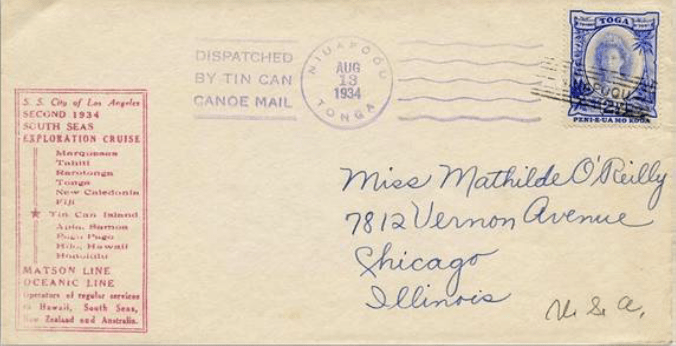 DISPATCHED
BY TIN CAN
CANOE MAIL
NIUAFOOU
AUG
13
1934
TONGA
TOGA
2½
PENI-E-UA MO KOGA
S. S. City of Los Angeles
SECOND 1934
SOUTH SEAS
EXPLORATION CRUISE
Marquesas
Tahiti
Rarotonga
Tonga
New Caledonia
Fiji
Tin Can Island
Apia, Samoa
Pago Pago
Hilo, Hawaii
Honolulu
MATSON LINE
OCEANIC LINE
Operators of regular services
to Hawaii, South Seas,
New Zealand and Australia.
Miss Mathilde O'Reilly
7812 Vernon Avenue
Chicago
Illinois
U.S.A.